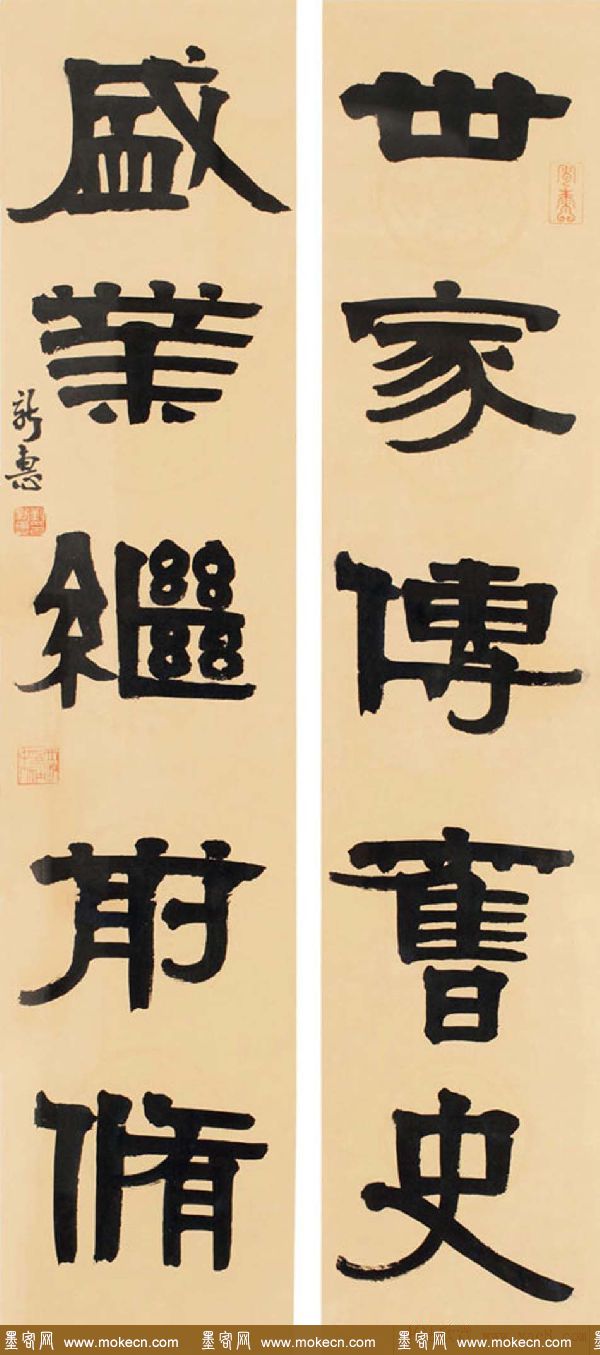 世家傳舊史
盛業繼前脩
新惠
墨客网 www.mokecn.com 墨客网 www.mokecn.com 墨客网 www.mokecn.com